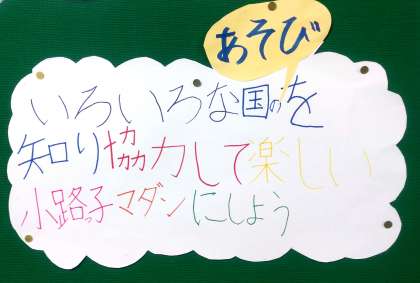 あそび
いろいろな国のを
知り協力して楽しい
小路っ子マダンにしよう